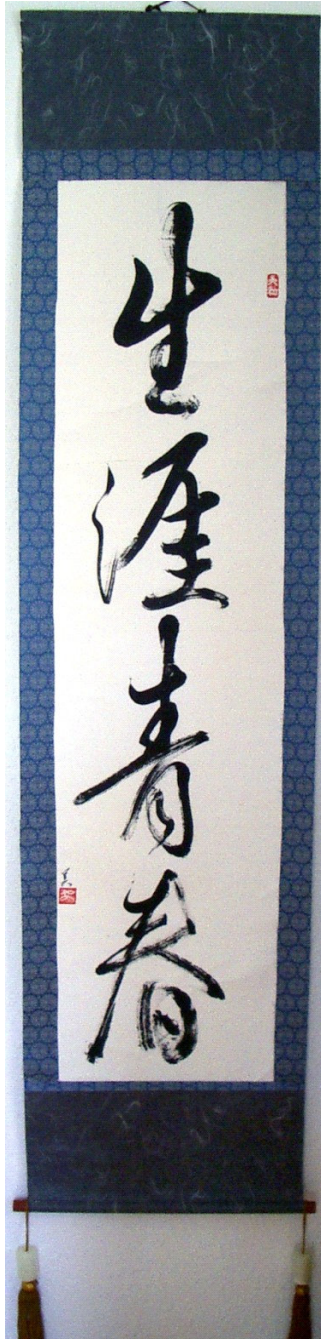 生涯青春